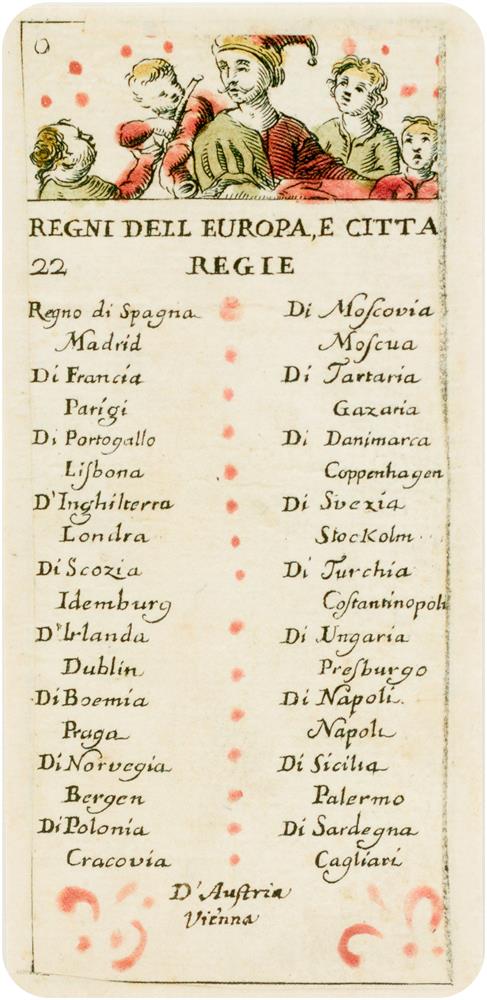 0
REGNI DELL EUROPA, E CITTA
22 REGIE
Regno di Spagna
Madrid
Di Francia
Parigi
Di Portogallo
Liſbona
D'Inghilterra
Londra
Di Scozia
Idemburg
D'Irlanda
Dublin
Di Boemia
Praga
Di Norvegia
Bergen
Di Polonia
Cracovia
Di Moſcovia
Moſcua
Di Tartaria
Gazaria
Di Danimarca
Coppenhagen
Di Svezia
StocKolm
Di Turchia
Coſtantinopoli
Di Ungaria
Preſburgo
Di Napoli.
Napoli
Di Sicilia
Palermo
Di Sardegna
Cagliari
D'Auſtria
Vienna